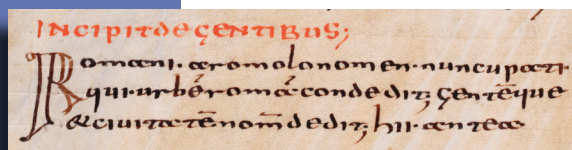 INCIPIT DE GENTIBUS;
Romani · a romolo nomen · nuncupati
qui · urbē romā condedit; gentēque
& ciuitatē nom̄ dedit; hii · antea